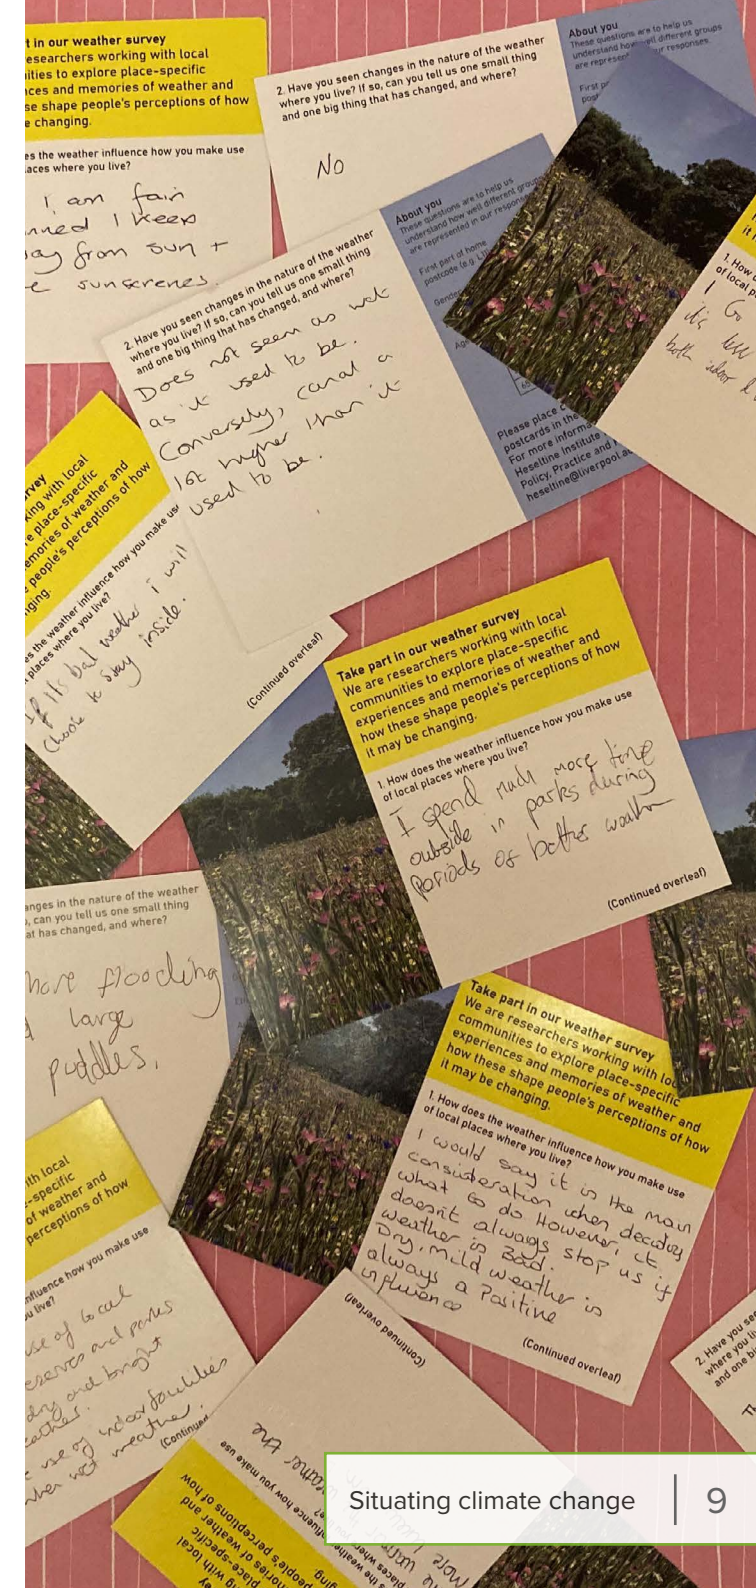 t in our weather survey
esearchers working with local
ities to explore place-specific
ces and memories of weather and
se shape people's perceptions of how
e changing.
es the weather influence how you make use
aces where you live?
I am fair
nned I keep
ay from sun +
e sunscrenes.
2. Have you seen changes in the nature of the weather
where you live? If so, can you tell us one small thing
and one big thing that has changed, and where?
No
About you
These questions are to help us
understand how well different groups
are represen ur responses.
First p
post
2. Have you seen changes in the nature of the weather
where you live? If so, can you tell us one small thing
and one big thing that has changed, and where?
Does not seem as wet
as it used to be.
Conversely, canal a
lot higher than it
used to be.
About you
These questions are to help us
understand how well different groups
are represented in our response
First part of home
postcode (e.g. L1
Gender
Ag
65
Please place c
postcards in the
For more informa
Heseltine Institute
Policy, Practice and
heseltine@liverpool.a
it
1. How
of local p
I Go
it's less
both indoor &
rvey
king with local
e place-specific
emories of weather and
people's perceptions of how
ging.
es the weather influence how you make us
places where you live?
If its bad weather i will
choose to stay inside.
(Continued overleaf)
Take part in our weather survey
We are researchers working with local
communities to explore place-specific
experiences and memories of weather and
how these shape people's perceptions of how
it may be changing.
1. How does the weather influence how you make use
of local places where you live?
I spend much more time
outside in parks during
periods of better weather
(Continued overleaf)
anges in the nature of the weather
, can you tell us one small thing
at has changed, and where?
more flooding
large
puddles.
Take part in our weather survey
We are researchers working with loc
communities to explore place-specific
experiences and memories of weather and
how these shape people's perceptions of how
it may be changing.
1. How does the weather influence how you make use
of local places where you live?
I would say it is the main
consideration when deciding
what to do However, it
doesn't always stop us if
weather is Bad.
Dry, mild weather is
always a Positive
influence
(Continued overleaf)
ith local
-specific
of weather and
perceptions of how
nfluence how you make use
u live?
use of local
eserves and parks
dry and bright
eather.
e use of indoor facilities
when wet weather.
(Continued
(Continued overleaf)
weather the
more
warm
nfluence how you make use
s the weathe
places where
ging
people's perceptions of how
mories of weather and
place-specific
ng with local
ey
2. Have you see
where you li
and one bi
Th
Situating climate change | 9